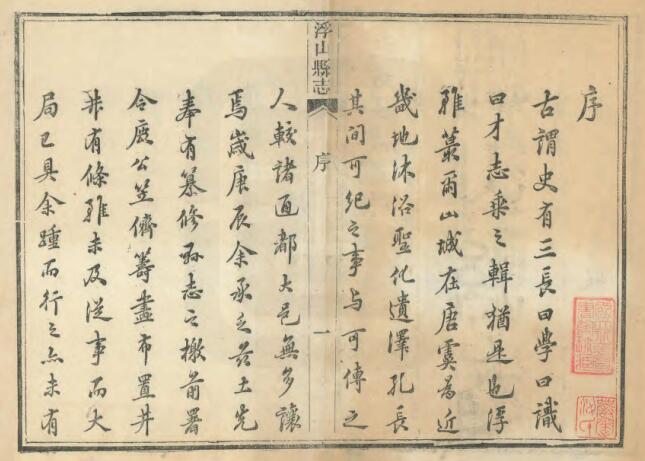 序
古謂史有三長曰學曰識
曰才志乘之輯猶是也浮
雖蕞爾山城在唐虞為近
畿地沐浴聖化遺澤孔長
其間可紀之事与可傳之
浮山縣志
序
一
人較諸通都大邑無多讓
焉歲庚辰余承乏茲土先
奉有纂修縣志之檄前署
令鹿公笠儕籌畫布置井
井有條雖未及從事而大
局已具余踵而行之亦未有